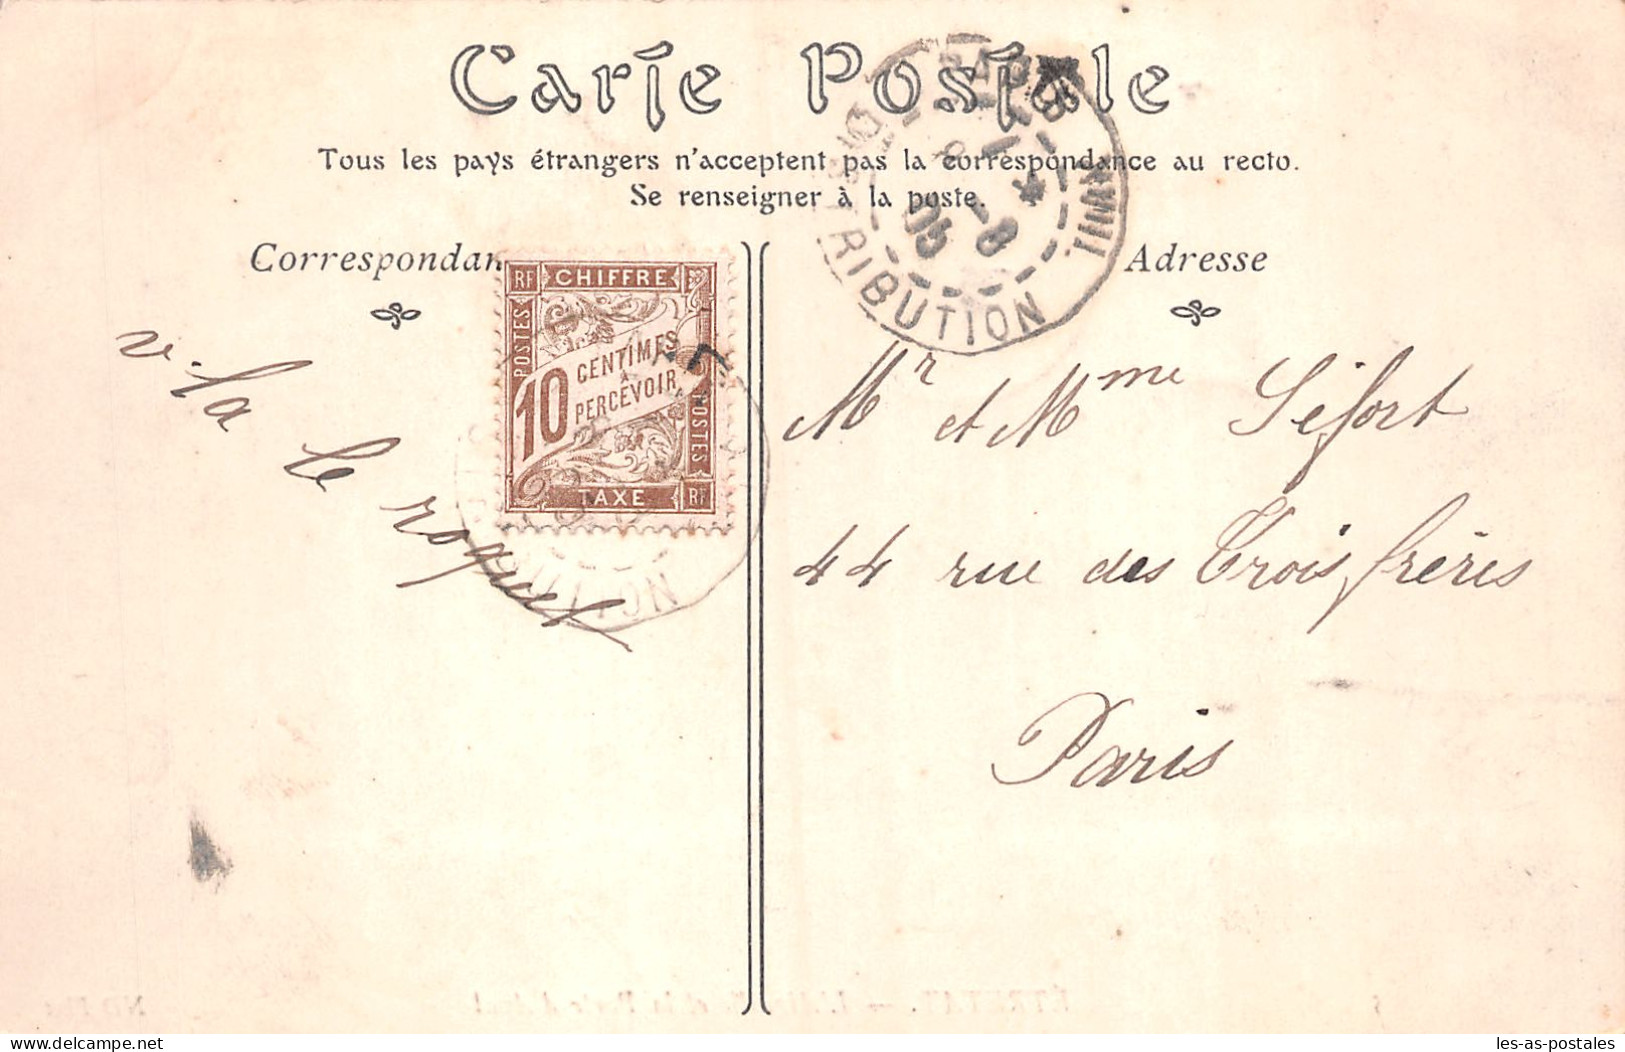 Carte Postale
Tous les pays étrangers n'acceptent pas la correspondance au recto.
Se renseigner à la poste.
Correspondan
Adresse
RF CHIFFRE
POSTES
10 CENTIMES
À
PERCEVOIR
POSTES
TAXE RF
PARIS
DISTRIBUTION
8
05
v'la
le
roquet
Mr et Mme Séfort
44 rue des Trois frères
Paris
ÉTRETAT. —
les-as-postales
delcampe.net